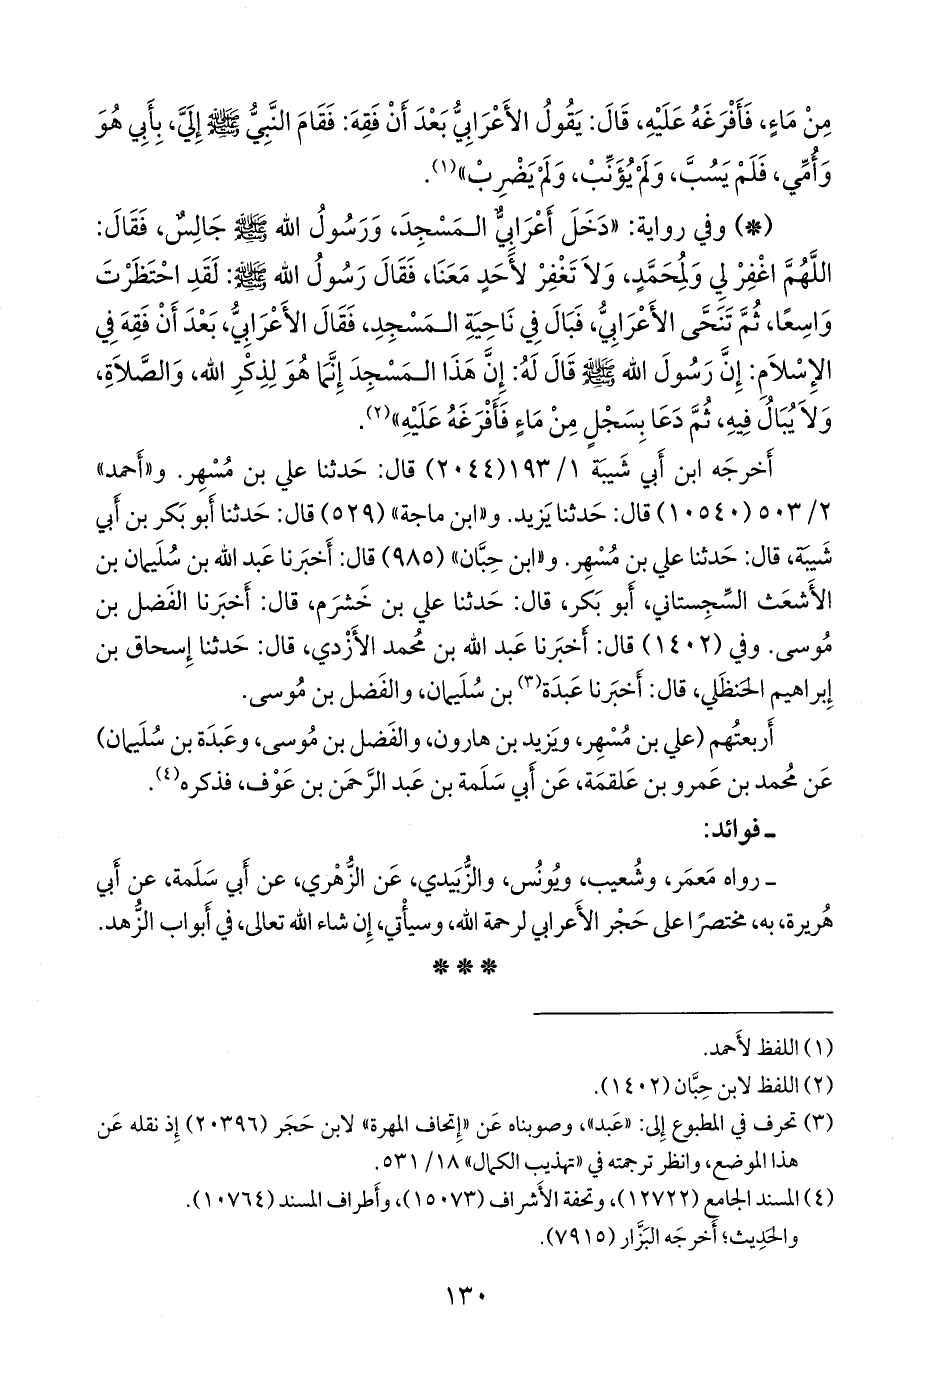 مِنْ مَاءٍ، فَأَفْرَغَهُ عَلَيْهِ، قَالَ: يَقُولُ الأَعْرَابِيُّ بَعْدَ أَنْ فَقِهَ: فَقَامَ النَّبِيُّ ﷺ إِلَيَّ، بِأَبِي هُوَ
وَأُمِّي، فَلَمْ يَسُبَّ، وَلَمْ يُؤَنِّبْ، وَلَمْ يَضْرِبْ»(١).
(*) وفي رواية: «دَخَلَ أَعْرَابِيٌّ الـمَسْجِدَ، وَرَسُولُ الله ﷺ جَالِسٌ، فَقَالَ:
اللَّهُمَّ اغْفِرْ لِي وَلِمُحَمَّدٍ، وَلاَ تَغْفِرْ لأَحَدٍ مَعَنَا، فَقَالَ رَسُولُ الله ﷺ: لَقَدِ احْتَظَرْتَ
وَاسِعًا، ثُمَّ تَنَحَّى الأَعْرَابِيُّ، فَبَالَ فِي نَاحِيَةِ الـمَسْجِدِ، فَقَالَ الأَعْرَابِيُّ، بَعْدَ أَنْ فَقِهَ فِي
الإِسْلاَمِ: إِنَّ رَسُولَ الله ﷺ قَالَ لَهُ: إِنَّ هَذَا الـمَسْجِدَ إِنَّمَا هُوَ لِذِكْرِ الله، وَالصَّلاَةِ،
وَلاَ يُبَالُ فِيهِ، ثُمَّ دَعَا بِسَجْلٍ مِنْ مَاءٍ فَأَفْرَغَهُ عَلَيْهِ»(٢).
أَخرجَه ابن أَبي شَيبة ١/ ١٩٣(٢٠٤٤) قال: حَدثنا علي بن مُسْهِر. و«أَحمد»
٢/ ٥٠٣ (١٠٥٤٠) قال: حَدثنا يَزيد. و«ابن ماجة» (٥٢٩) قال: حَدثنا أَبو بَكر بن أَبي
شَيبة، قال: حَدثنا علي بن مُسْهِر. و«ابن حِبَّان» (٩٨٥) قال: أَخبَرنا عَبد الله بن سُليمان بن
الأَشعَث السِّجِستاني، أَبو بَكر، قال: حَدثنا علي بن خَشرَم، قال: أَخبَرنا الفَضل بن
مُوسى. وفي (١٤٠٢) قال: أَخبَرنا عَبد الله بن مُحمد الأَزْدي، قال: حَدثنا إِسحاق بن
إِبراهيم الحَنظَلي، قال: أَخبَرنا عَبدَة(٣) بن سُلَيمان، والفَضل بن مُوسى.
أَربعتُهم (علي بن مُسْهِر، ويَزيد بن هارون، والفَضل بن مُوسى، وعَبدَة بن سُلَيمان)
عَن مُحمد بن عَمرو بن عَلقمَة، عَن أَبي سَلَمة بن عَبد الرَّحمَن بن عَوْف، فذكره(٤).
ـ فوائد:
ـ رواه مَعمَر، وشُعيب، ويُونُس، والزُّبَيدي، عَن الزُّهْري، عَن أَبي سَلَمة، عَن أَبي
هُريرة، به، مختصرًا على حَجْر الأَعرابي لرحمة الله، وسيأْتي، إِن شاء الله تعالى، في أَبواب الزُّهد.
* * *
(١) اللفظ لأَحمد.
(٢) اللفظ لابن حِبَّان (١٤٠٢).
(٣) تحرف في المطبوع إِلى: «عَبد»، وصوبناه عَن «إِتحاف المهرة» لابن حَجَر (٢٠٣٩٦) إِذ نقله عَن
هذا الموضع، وانظر ترجمته في «تهذيب الكمال» ١٨/ ٥٣١.
(٤) المسند الجامع (١٢٧٢٢)، وتحفة الأَشراف (١٥٠٧٣)، وأَطراف المسند (١٠٧٦٤).
والحَدِيث؛ أَخرجَه البَزَّار (٧٩١٥).
١٣٠